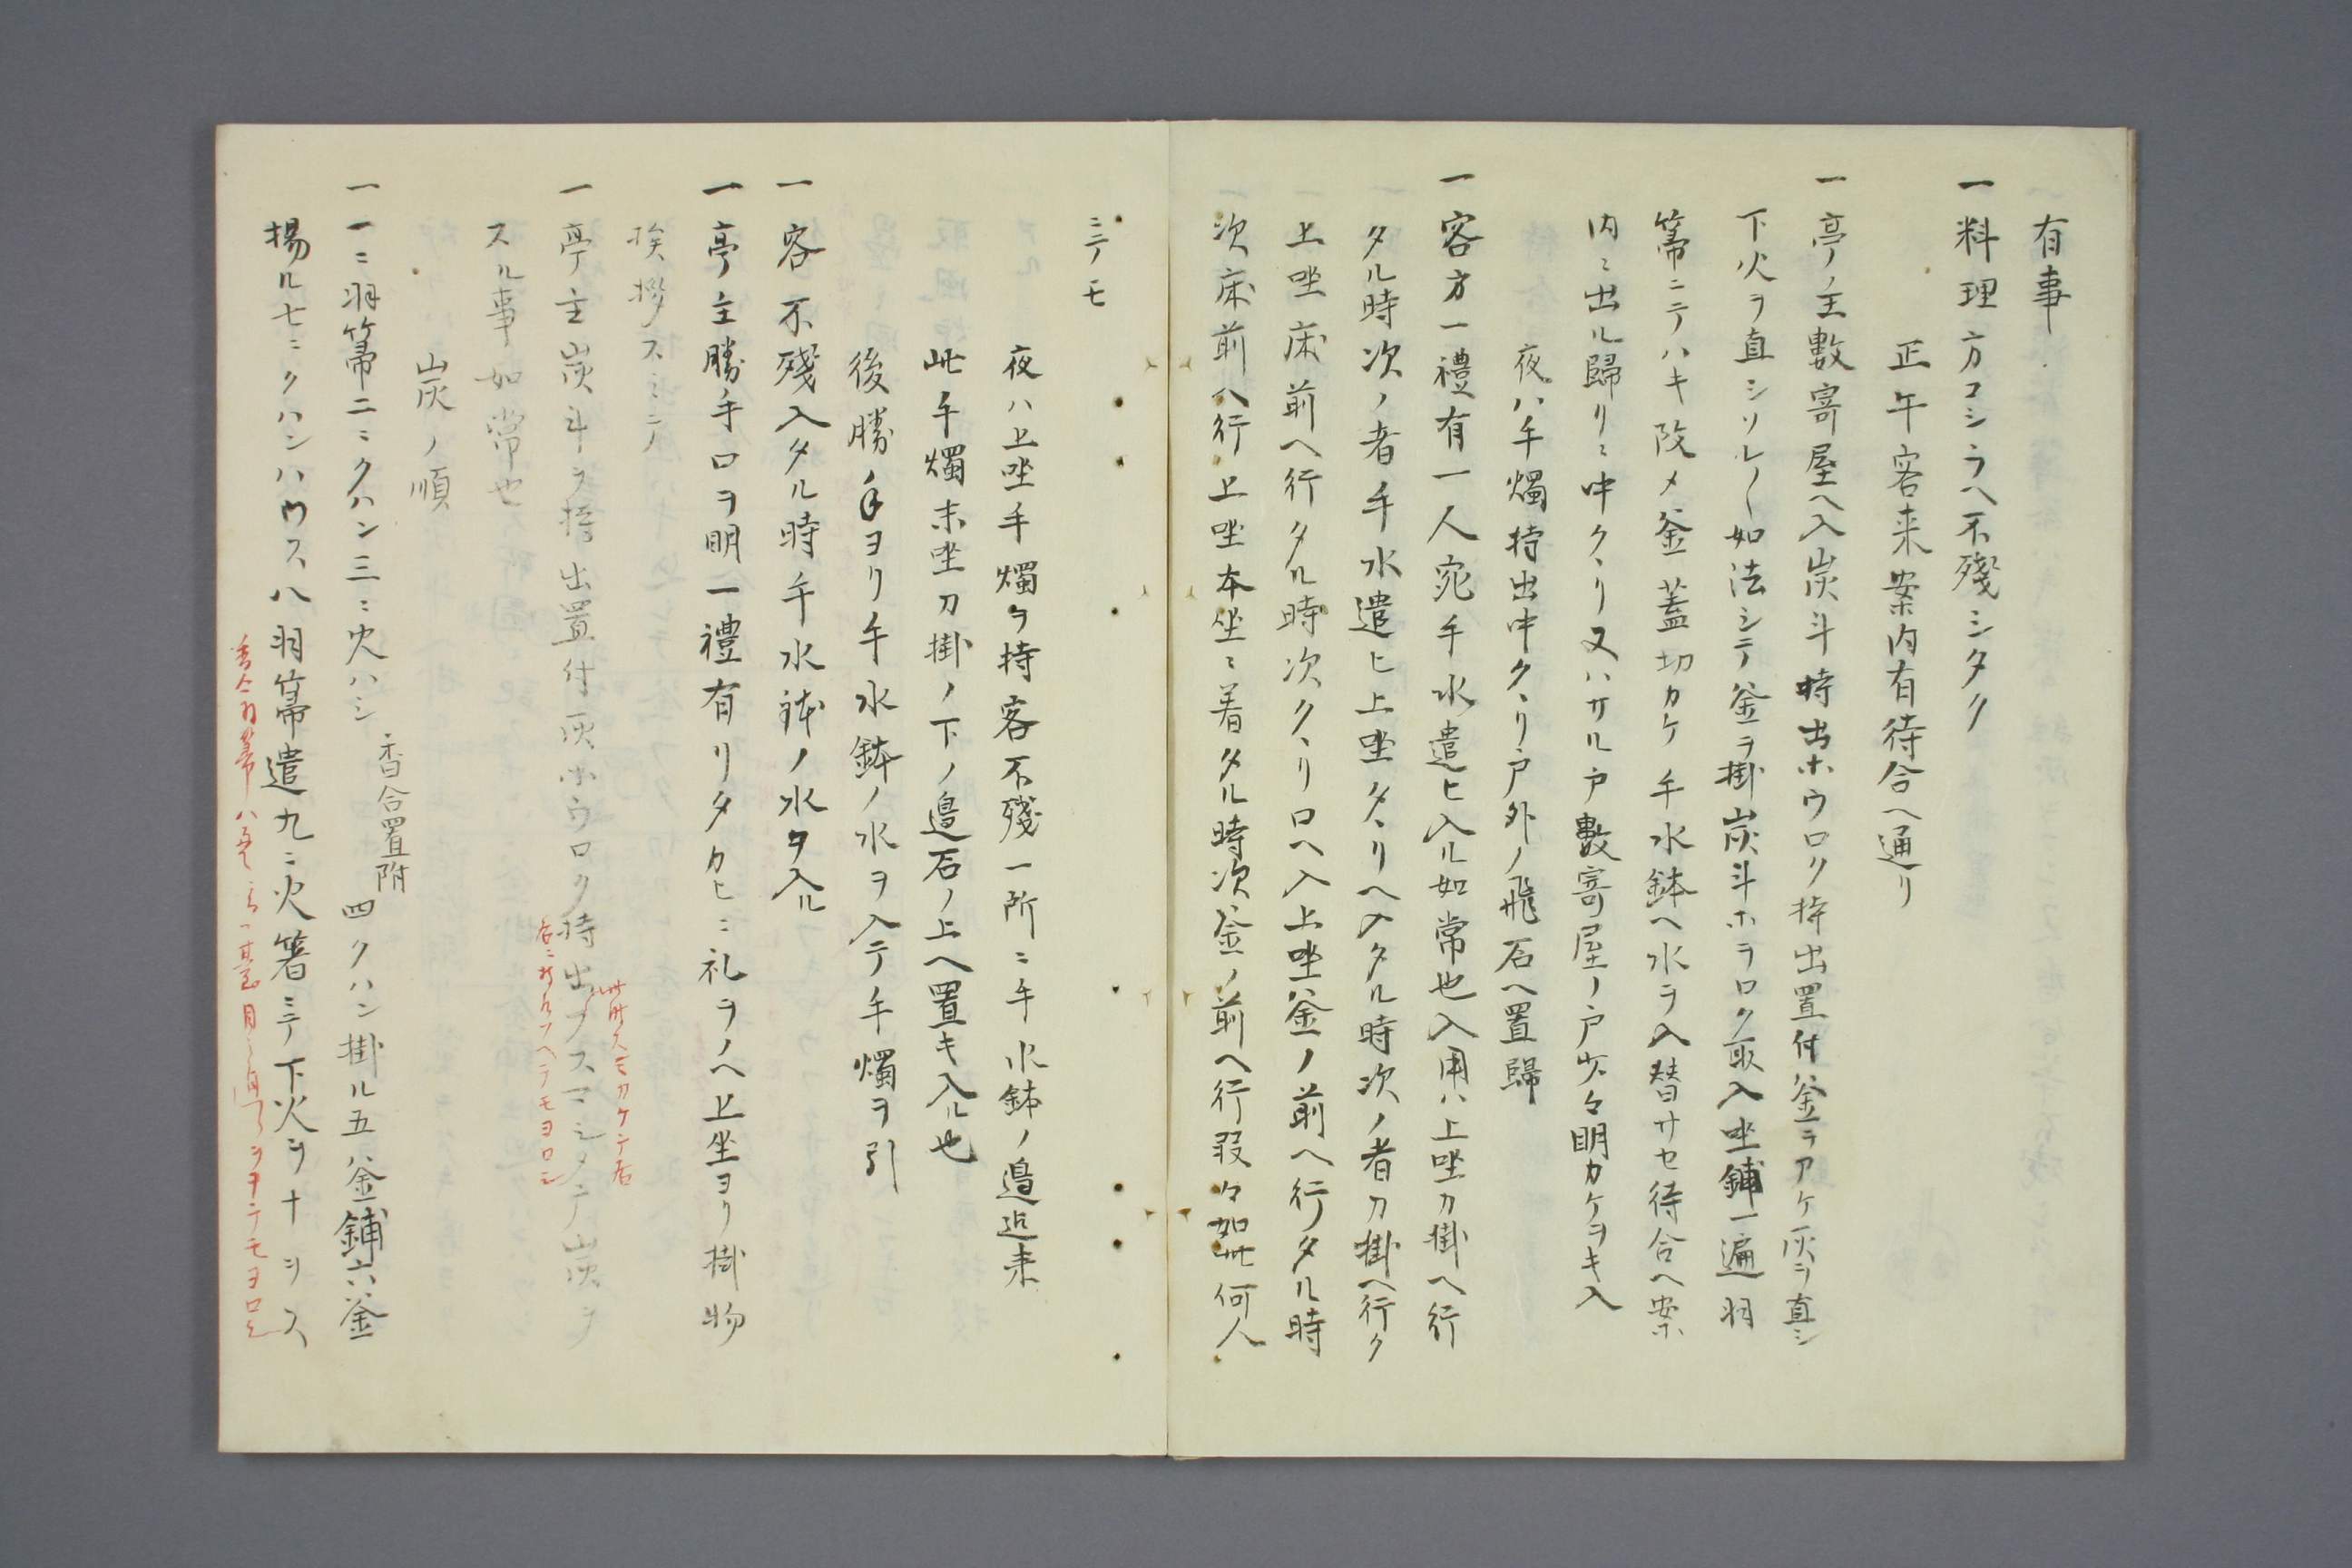 有事
一 料理方コシラヘ不殘シタク
正午客来案内有待合ヘ通リ
一 亭ノ主數寄屋ヘ入炭斗持出ホウロク持出置付釜ヲアケ灰ヲ直シ
下火ヲ直シソレ〱如法シテ釜ヲ掛炭斗ホヲロク取入坐鋪一遍羽
箒ニテハキ改メ釜蓋切カケ手水鉢ヘ水ヲ入替サセ待合ヘ案
内ニ出ル歸リニ中クヽリ又ハサル戸數寄屋ノ戸少々明カケヲキ入
夜ハ手燭持出中クヽリ戸外ノ飛石ヘ置歸
一 客方一禮有一人宛手水遣ヒ入ル如常也入用ハ上坐刀掛ヘ行
タル時次ノ者手水遣ヒ上坐クヽリヘ入タル時次ノ者刀掛ヘ行ク
上坐床前ヘ行タル時次クヽリ口ヘ入上坐釜ノ前ヘ行タル時
次床前ヘ行上坐本坐ニ着タル時次釜ノ前ヘ行段々如此何人
ニテモ
夜ハ上坐手燭ヲ持客不殘一所ニ手水鉢ノ邉迄来
此手燭末坐刀掛ノ下ノ邉石ノ上ヘ置キ入ル也
後勝手ヨリ手水鉢ノ水ヲ入テ手燭ヲ引
一 客不殘入タル時手水鉢ノ水ヲ入ル
一 亭主勝手口ヲ明一禮有リタカヒニ礼ヲノヘ上坐ヨリ掛物
挨拶スミテ
一 亭主炭斗ヲ持出置付灰ホウロク持出フスマシメテ炭ヲ
スル事如常也
炭ノ順
一 一ニ羽箒二ニクハン三ニ火ハシ
香合置附
四クハン掛ル五釜鋪六釜
揚ル七ニクハンハツス八羽箒遣九ニ火箸ニテ下火ヲナヲス